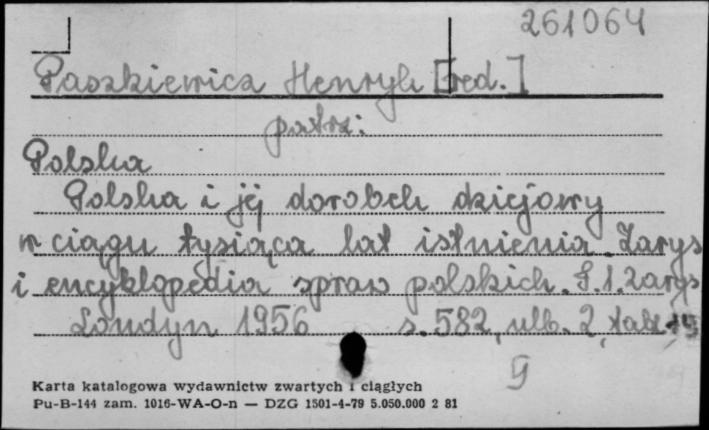 261064
Paszkiewicz Henryk [red.]
patrz:
Polska
Polska i jej dorobek dziejowy
w ciągu tysiąca lat istnienia. Zarys
i encyklopedia spraw polskich. S.1. Zarys
Londyn 1956 s. 582, nlb. 2, tabl.
g
Karta katalogowa wydawnictw zwartych i ciągłych
Pu-B-144 zam. 1016-WA-O-n — DZG 1501-4-79 5.050.000 2 81